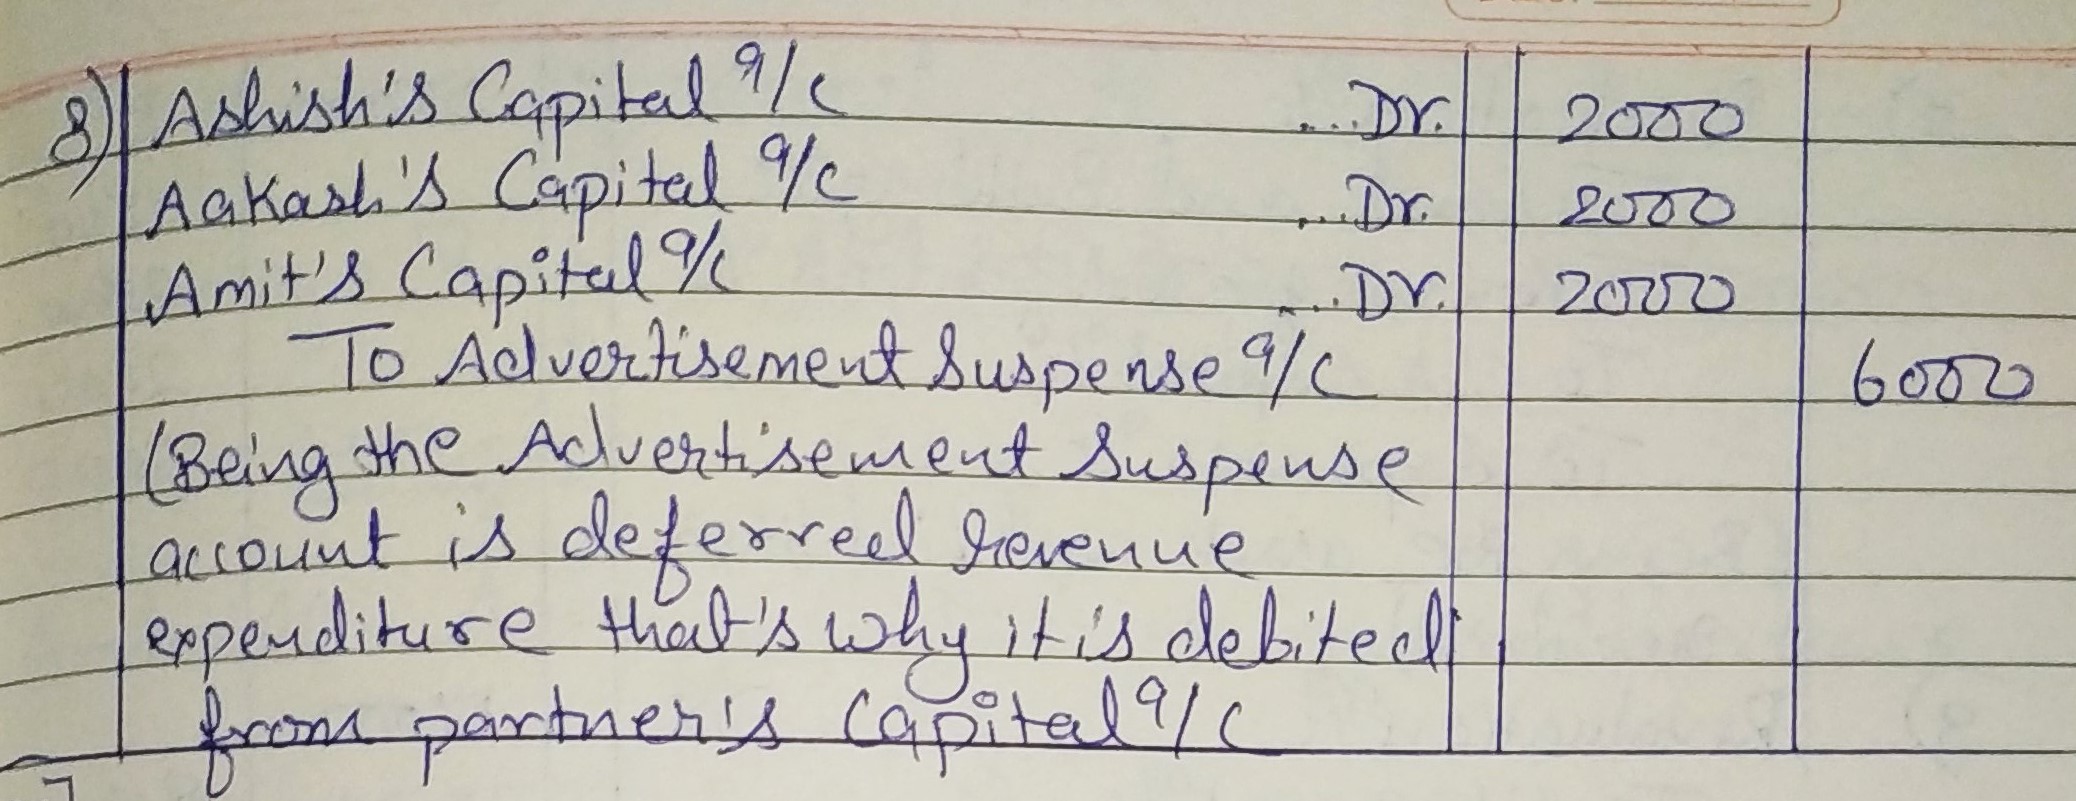 8) Ashish's Capital a/c ...Dr. 2000
Aakash's Capital a/c ...Dr. 2000
Amit's Capital a/c ...Dr. 2000
To Advertisement Suspense a/c 6000
(Being the Advertisement Suspense
account is deferred revenue
expenditure that's why it is debited
from partner's Capital a/c